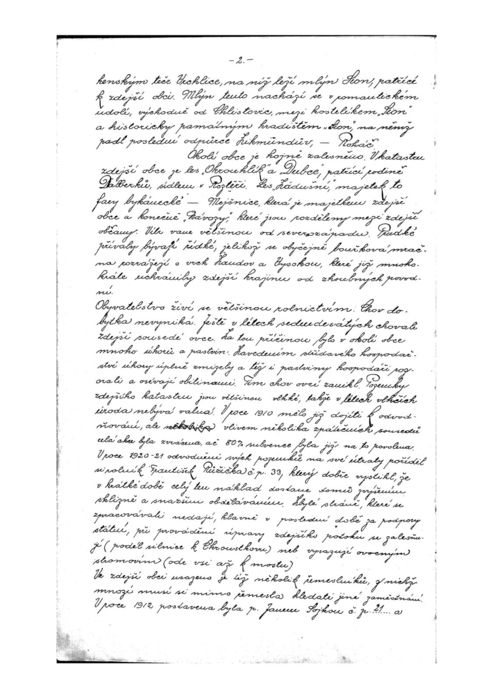 - 2. -
kenským teče Vrchlice, na níž leží mlýn Sion, patřící
k zdejší obci. Mlýn tento nachází se v romantickém
údolí, východně od Chlistovic, mezi kostelíkem „Sion"
a historicky památným hradištěm „Sion", na němž
padl poslední odpůrce Zikmundův, — Roháč.
Okolí obce je hojně zalesněno. V katastru
zdejší obce je les „Chroustlík" a „Dubec", patřící rodině
Daberků, sídlem v les „Zádušní", majetek to
fary bykáňecké — Mejšnice, která je majetkem zdejší
obce a konečně „Průvozy", které jsou rozděleny mezi zdejší
občany. Vítr vane většinou od severozápadu. Prudké
přívaly bývají řídké, jelikož se obyčejně bouřková mrač-
na rozrážejí o vrch Žandov a Vysokou, které již mnoho-
kráte uchránily zdejší krajinu od zhoubných povod-
ní.
Obyvatelstvo živí se většinou rolnictvím. Chov do-
bytka nevyniká. Ještě v létech sedmdesátých chovali
zdejší sousedé ovce. Za tou příčinou bylo v okolí obce
mnoho úhorů a pastvin. Zavedením střídavého hospodář-
ství úhory úplně zmizely a též i pastviny hospodáři roz-
orali a osívají obilninami. Tím chov ovcí zanikl. Pozemky
zdejšího katastru jsou většinou vlhké, takže v létech vlhčích
úroda nebývá valná. V roce 1910 mělo již dojíti k odvod-
ňování, ale vlivem několika zpátečních sousedů
celá akce byla zvrácena, ač 80% subvence byla již na to povolena.
V roce 1920-21 odvodnění svých pozemků na své útraty pořídil
si rolník František Růžička č.p. 33, který dobře vystihl, že
v krátké době celý ten náklad dostane domů zvýšenou
sklizně a snazším obděláváním. Zbylé stráně, které se
zpracovávati nedají, hlavně v poslední době za podpory
státní, při provádění úpravy zdejšího potoku se zalesňu-
jí (podél silnice k Chroustkovu) neb vysazují ovocným
stromovím (ode vsi až k mostu)
Ve zdejší obci usazeno je též několik řemeslníků, z nichž
mnozí musí se mimo řemesla hledati jiné zaměstnání.
V roce 1912 postavena byla p. Janem Sojkou č.p. 21.... a